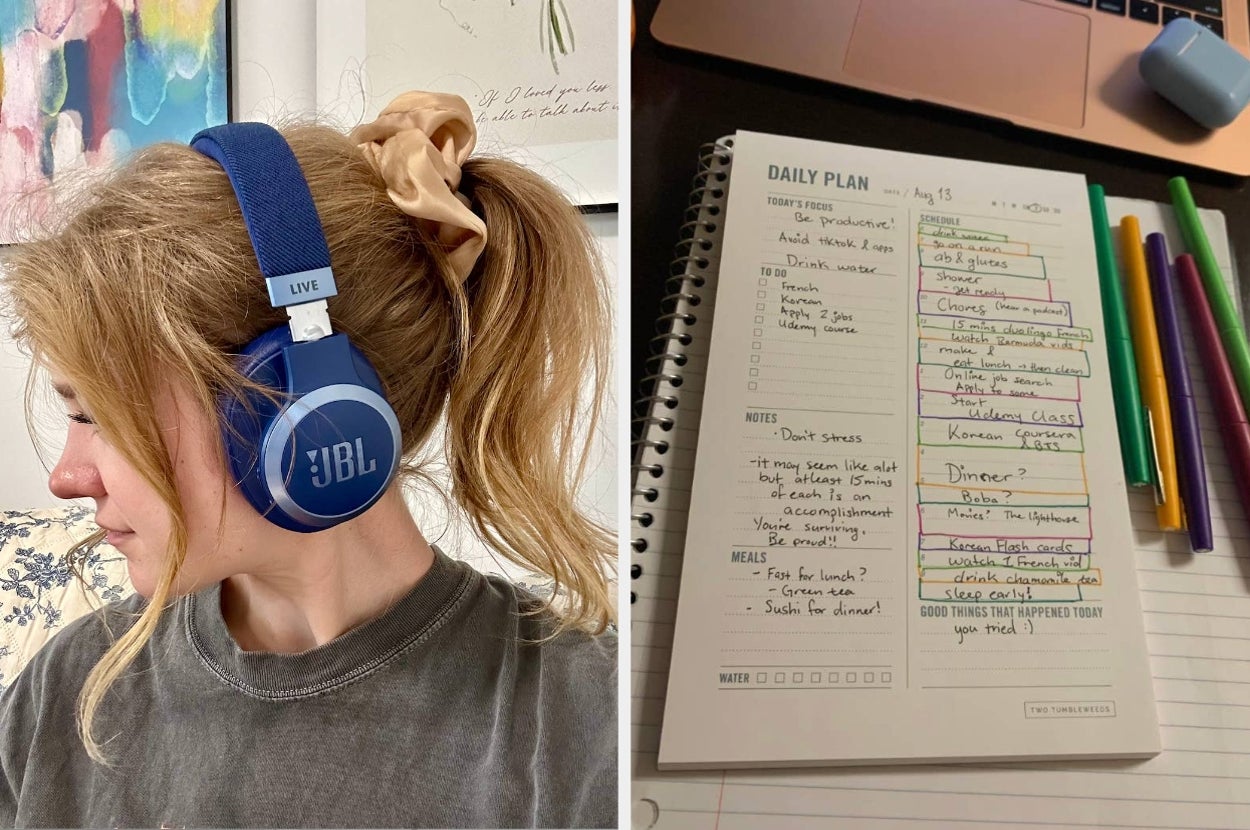 If I loved you less
be able to talk about
LIVE
JBL
DAILY PLAN
DATE / Aug 13
TODAY'S FOCUS
Be productive!
Avoid tiktok & apps
Drink water
TO DO
French
Korean
Apply 2 jobs
Udemy course
NOTES
· Don't stress
- it may seem like alot
but atleast 15 mins
of each is an
accomplishment
You're surviving.
Be proud!!
MEALS
- Fast for lunch?
- Green tea
- Sushi for dinner!
WATER
SCHEDULE
drink water
go on a run
ab & glutes
shower
- get ready
Chores (hear a podcast)
15 mins duolingo French
Watch Bermuda vids
make &
eat lunch → then clean
Online job search
Apply to some
Start
Udemy Class
Korean Coursera
& BTS
Dinner?
Boba?
Movies? The lighthouse
Korean Flash cards
watch 1 French vid
drink chamomile tea
sleep early!
GOOD THINGS THAT HAPPENED TODAY
you tried :)
TWO TUMBLEWEEDS